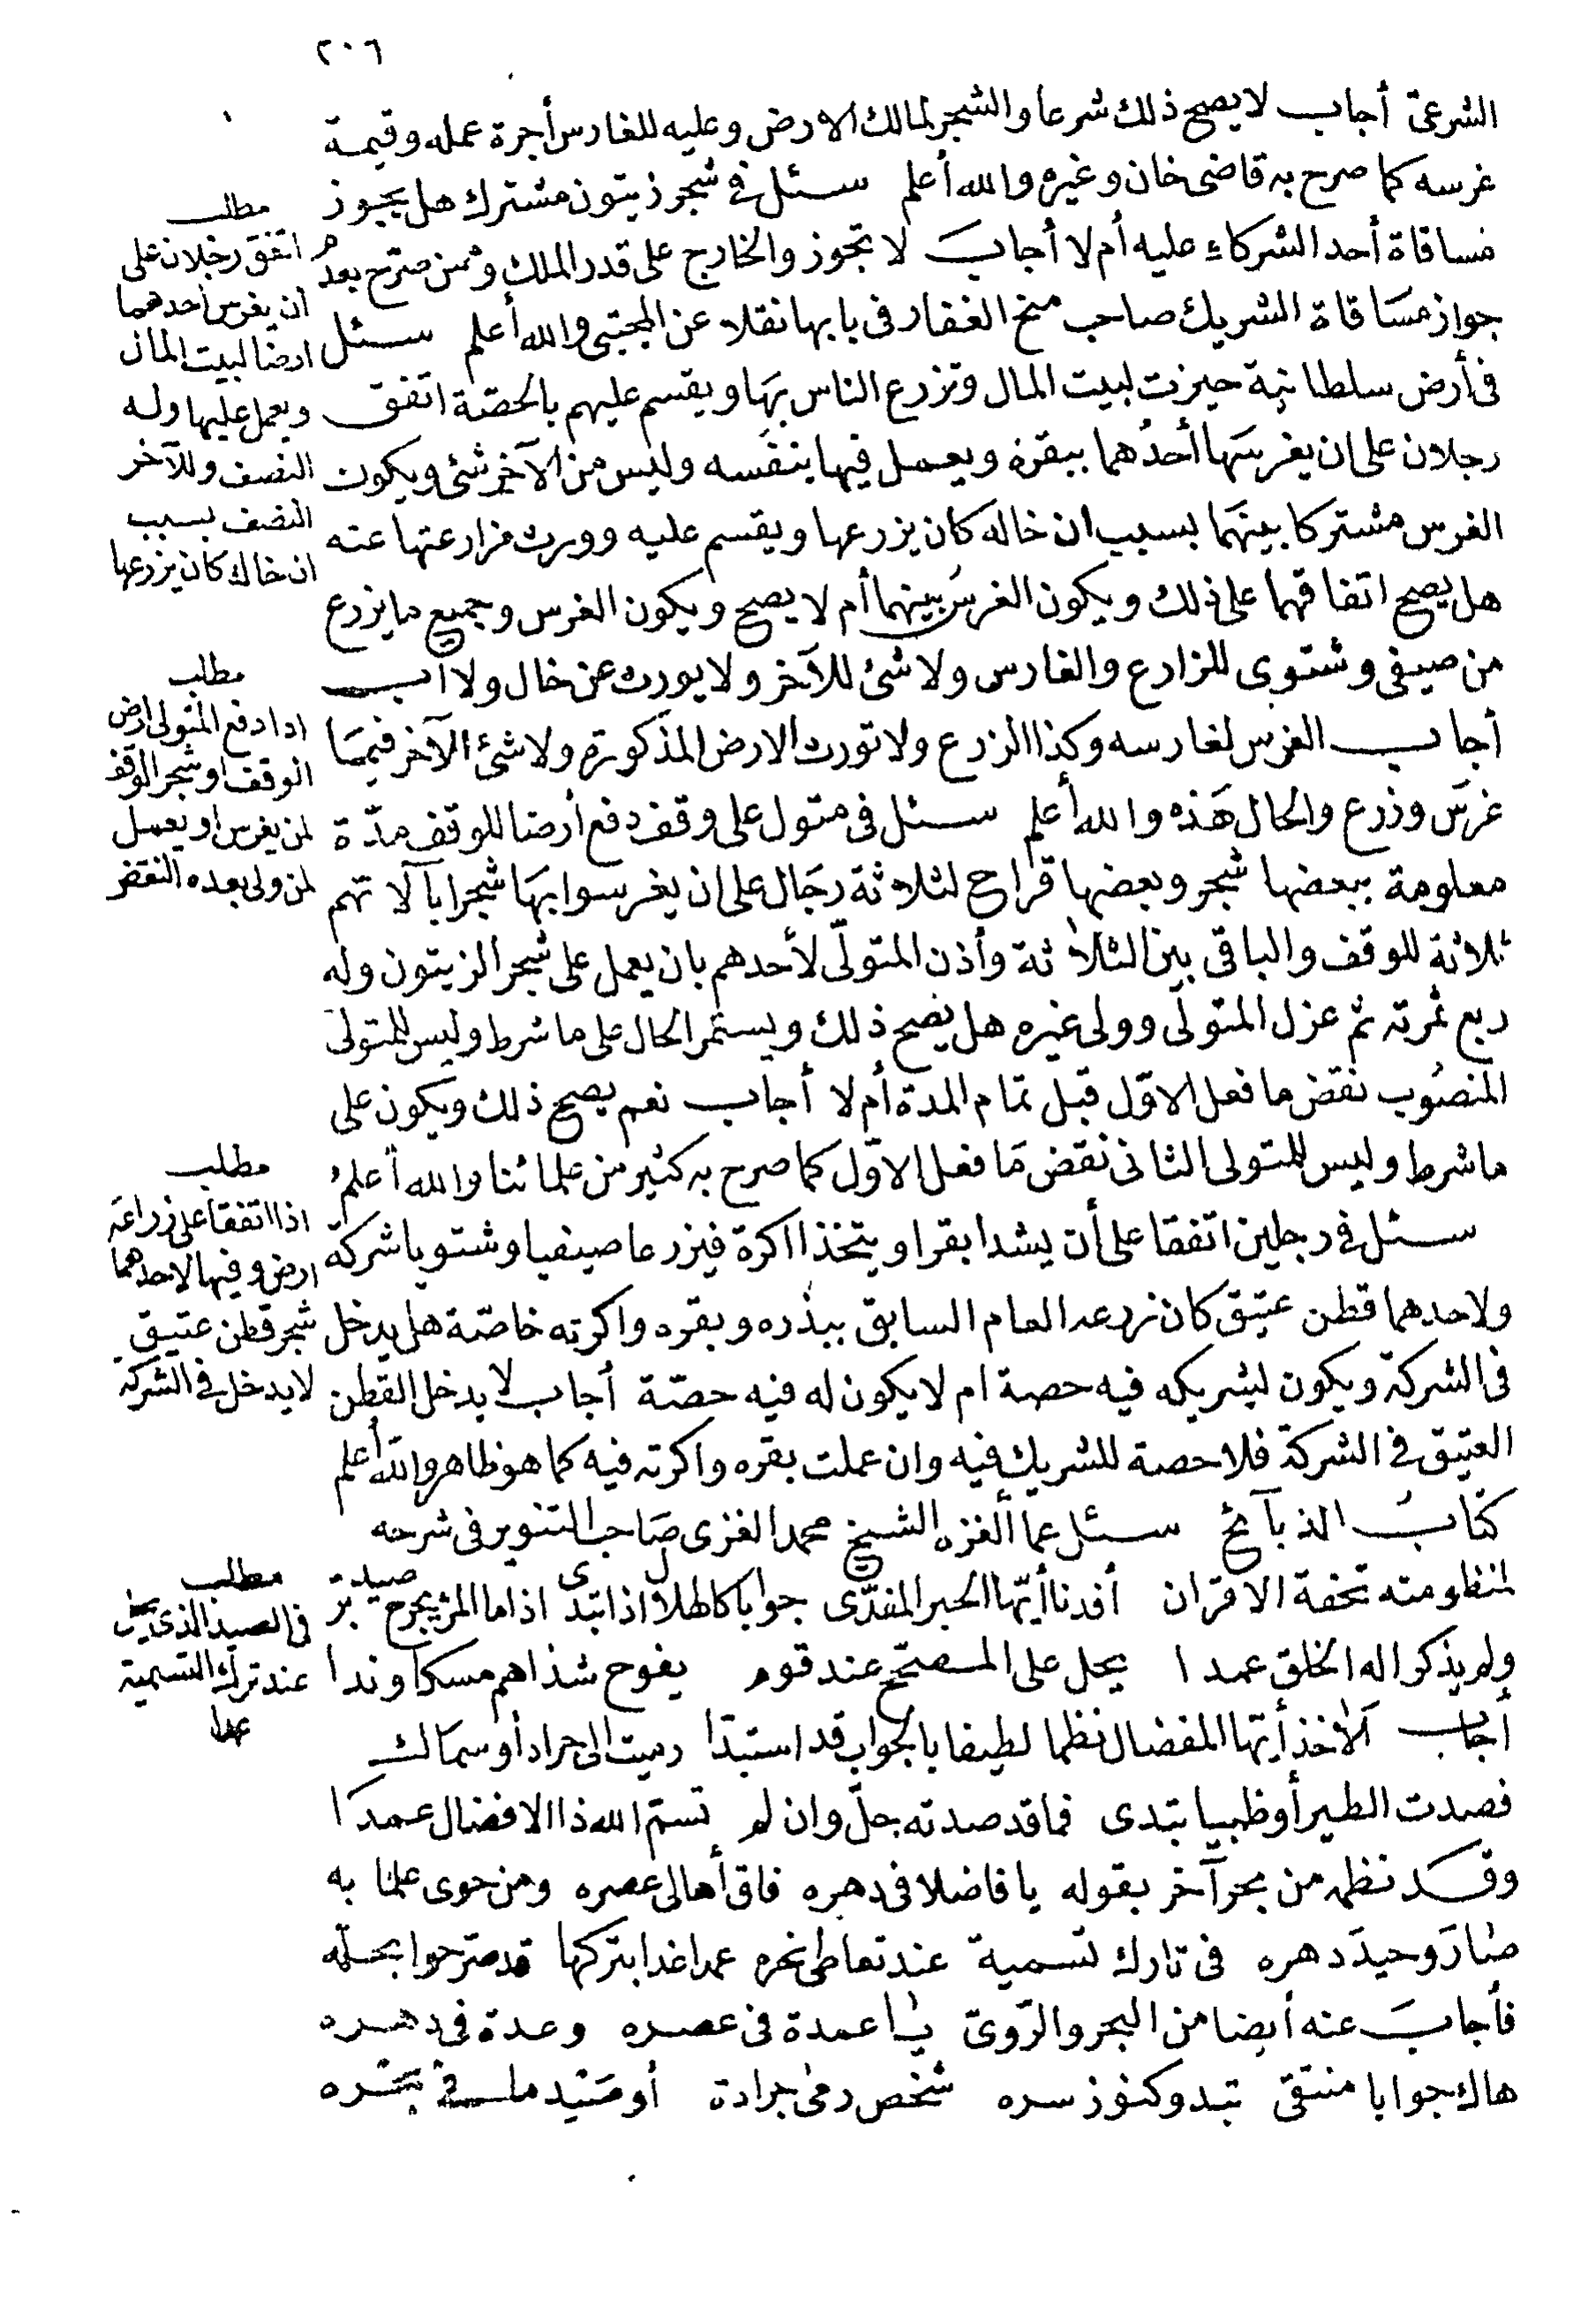 ٢٠٦
الشرعىّ أجاب لا يصح ذلك شرعا والشجر لمالك الارض وعليه للغارس أجرة عمله وقيمة
غرسه كما صرح به قاضى خان وغيره والله أعلم سئل فى شجر زيتون مشترك هل يجوز
مساقاة أحد الشركاء عليه أم لا أجاب لا تجوز والخارج على قدر الملك وممن صرّح بعدم
جواز مساقاة الشريك صاحب منح الغفار فى بابها نقلا عن المجتبى والله أعلم سئل
فى أرض سلطانية حيزت لبيت المال وتزرع الناس بها ويقسم عليهم بالحصّة اتفق
رجلان على ان يغرسها أحدهما ببقره ويعمل فيها بنفسه وليس من الآخر شئ ويكون
الغرس مشتركا بينهما بسبب ان خاله كان يزرعها ويقسم عليه وورث مزارعتها عنه
هل يصح اتفاقهما على ذلك ويكون الغرس بينهما أم لا يصح ويكون الغرس وجميع ما يزرع
من صيفى وشتوى للزارع والغارس ولا شئ للآخر ولا يورث عن خال ولا أب
أجاب الغرس لغارسه وكذا الزرع ولا تورث الارض المذكورة ولا شئ الآخر فيما
غرس وزرع والحال هذه والله أعلم سئل فى متول على وقف دفع أرضا للوقف مدّة
معلومة ببعضها شجر وبعضها قراح لثلاثة رجال على ان يغرسوا بها شجرا بآلاتهم
ثلاثة للوقف والباقى بين الثلاثة وأذن المتولّى لأحدهم بان يعمل على شجر الزيتون وله
ربع ثمرته ثم عزل المتولّى وولى غيره هل يصح ذلك ويستمر الحال على ما شرط وليس للمتولى
المنصوب نقض ما فعل الاوّل قبل تمام المدة أم لا أجاب نعم يصح ذلك ويكون على
ما شرط وليس للمتولى الثانى نقض ما فعل الاوّل كما صرح به كثير من علمائنا والله أعلم
سئل فى رجلين اتفقا على أن يشدا بقرا ويتخذا اكرة فيزرعا صيفيا وشتويا شركة
ولاحدهما قطن عتيق كان زرعه العام السابق ببذره وبقره واكرته خاصّة هل يدخل
فى الشركة ويكون لشريكه فيه حصة ام لا يكون له فيه حصّة أجاب لا يدخل القطن
العتيق فى الشركة فلا حصة للشريك فيه وان عملت بقره واكرته فيه كما هو ظاهر والله أعلم
كتاب الذبآئح سئل عما ألغزه الشيخ محمد الغزى صاحب التنوير فى شرحه
لمنظومته تحفة الاقران أفدنا أيّها الحبر المفدّى جوابا كالهلال اذا تبدى اذا ما المرء يجرح صيد بر
ولم يذكر اله الخلق عمدا يحل على المصحّح عند قوم يفوح شذاهم مسكا وندا
أجاب ألا خذ أيّها المفضال نظما لطيفا بالجواب قد استبدّا رميت الى جراد أو سماك
فصدت الطير أو ظبيا تبدى فما قد صدته حلّ وان لم تسمّ الله ذا الافضال عمدا
وقد نظمه من بحر آخر بقوله يا فاضلا فى دهره فاق أهالى عصره ومن حوى علما به
صار وحيد دهره فى تارك تسمية عند تعاطى نحره عمدا غدا بتركها قد صرّحوا بحلّه
فأجاب عنه أيضا من البحر والروىّ يا عمدة فى عصره وعدة فى دهره
هاك جوابا منتقى تبدو كنوز سره شخص رمى جرادة أو صيد ما فى بحره
مطلب
اتفق رجلان على
أن يغرس احدهما
ارضا لبيت المال
ويعمل عليها وله
النصف وللآخر
النصف بسبب
ان خاله كان يزرعها
مطلب
اذا دفع المتولى ارض
الوقف او شجر الوقف
لمن يغرس او يعمل
لمن ولى بعده النقض
مطلب
اذا اتفقا على زراعة
ارض وفيها لاحدهما
شجر قطن عتيق
لا يدخل فى الشركة
مطلب
فى الصيد الذى يحل
عند ترك التسمية
عمدا